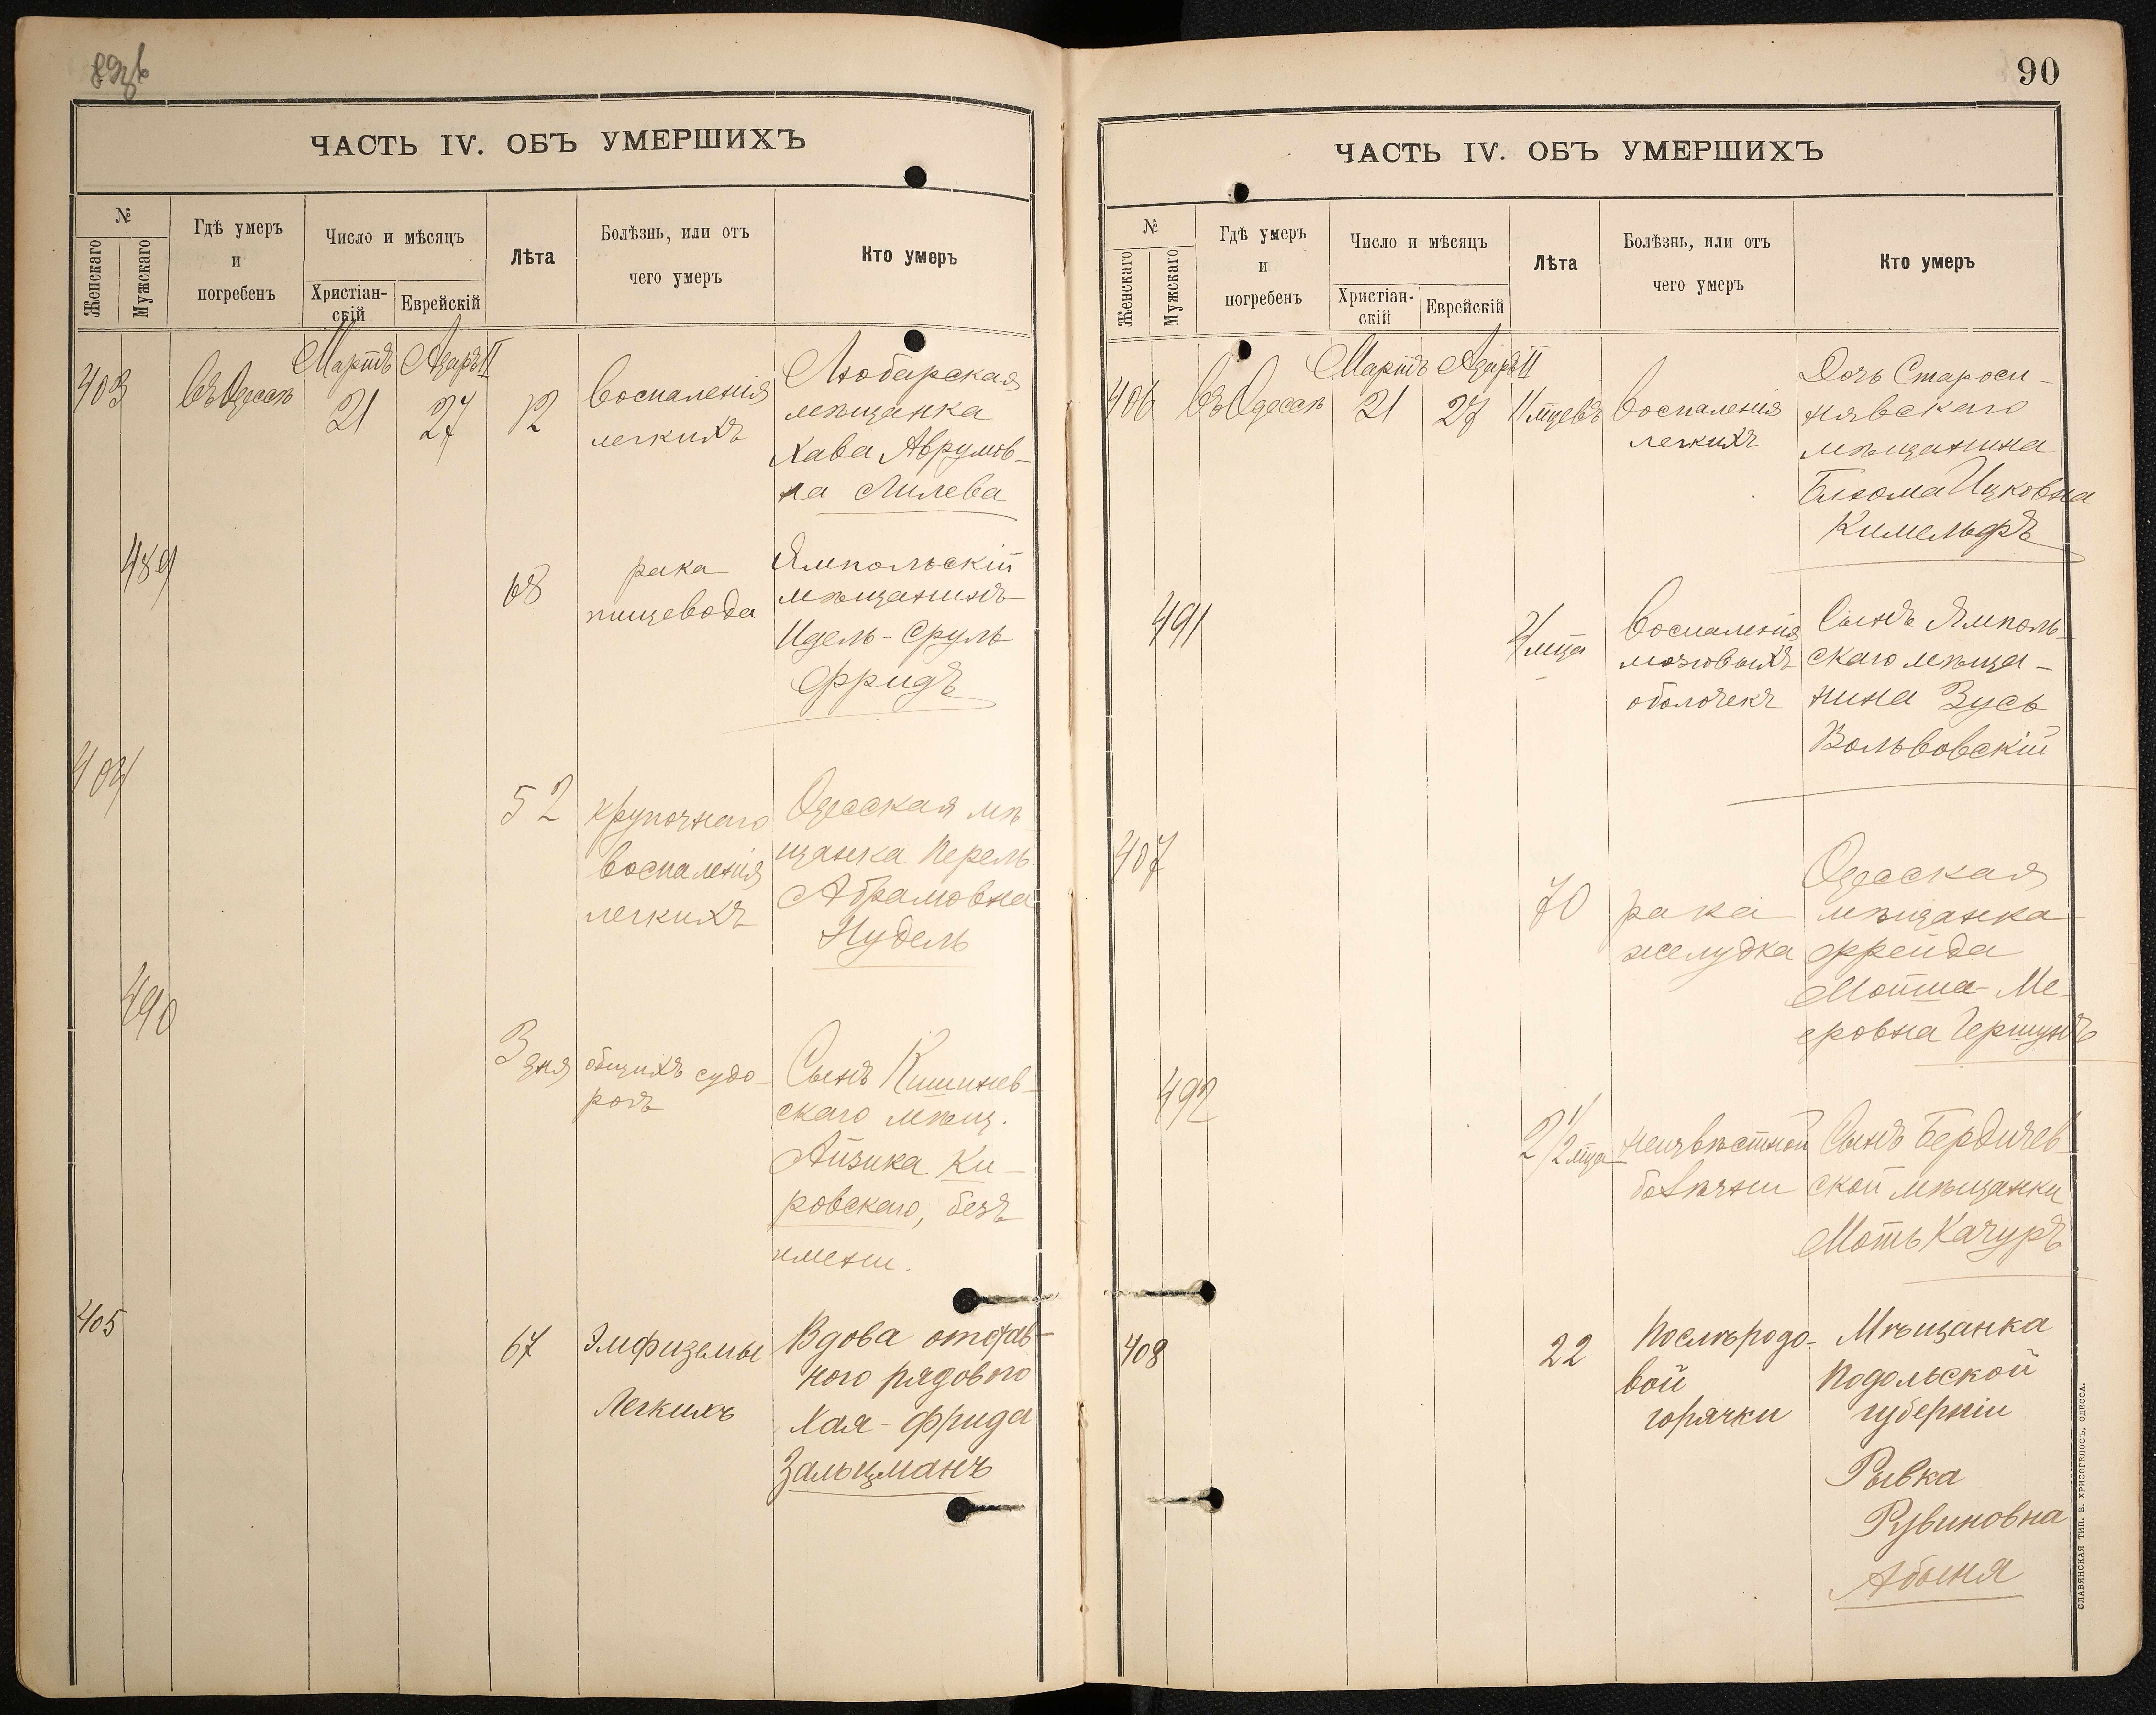 ЧАСТЬ IV. ОБЪ УМЕРШИХЪ
№
Женскаго
Мужскаго
Гдѣ умеръ
и
погребенъ
Число и мѣсяцъ
Христіан-
скій
Еврейскій
Лѣта
Болѣзнь, или отъ
чего умеръ
Кто умеръ
Мартъ Адаръ II
403 въ Одессѣ 21 27 12
воспаленія
легкихъ
Любарская
мѣщанка
Хава Аврумов-
на Лилева
489
68
рака
пищевода
Ямпольскій
мѣщанинъ
Идель-Сруль
Фридъ
404
52
крупознаго
воспаленія
легкихъ
Одесская мѣ
щанка Перель
Абрамовна
Нудель
490
3 дня
общихъ судо-
рогъ
Сынъ Кишинев-
скаго мѣщ.
Айзика Ки-
ровскаго, безъ
имени.
405
67
Эмфиземы
Легкихъ
Вдова отстав-
ного рядового
Хая-Фрида
Зальцманъ
90
ЧАСТЬ IV. ОБЪ УМЕРШИХЪ
№
Женскаго
Мужскаго
Гдѣ умеръ
и
погребенъ
Число и мѣсяцъ
Христіан-
скій
Еврейскій
Лѣта
Болѣзнь, или отъ
чего умеръ
Кто умеръ
Мартъ Адаръ II
406 въ Одессѣ 21 27 11 мцевъ
воспаленія
легкихъ
Дочь Староси-
нявскаго
мѣщанина
Блюма Ицковна
Кимельфъ
491
4 мца
воспаленія
мозговыхъ
оболочекъ
Сынъ Ямполь-
скаго мѣща-
нина Зусь
Вольвовскій
407
70
рака
желудка
Одесская
мѣщанка
Фрейда
Мотша-Ме-
еровна Гершунъ
492
2 1/2 мца
неизвѣстной
болѣзни
Сынъ Бердичев-
ской мѣщанки
Моть Качуръ
408
22
Послѣродо-
вой
горячки
Мѣщанка
Подольской
губерніи
Рывка
Рувиновна
Абыня
СЛАВЯНСКАЯ ТИП. Е. ХРИСОГЕЛОСЪ, ОДЕССА.